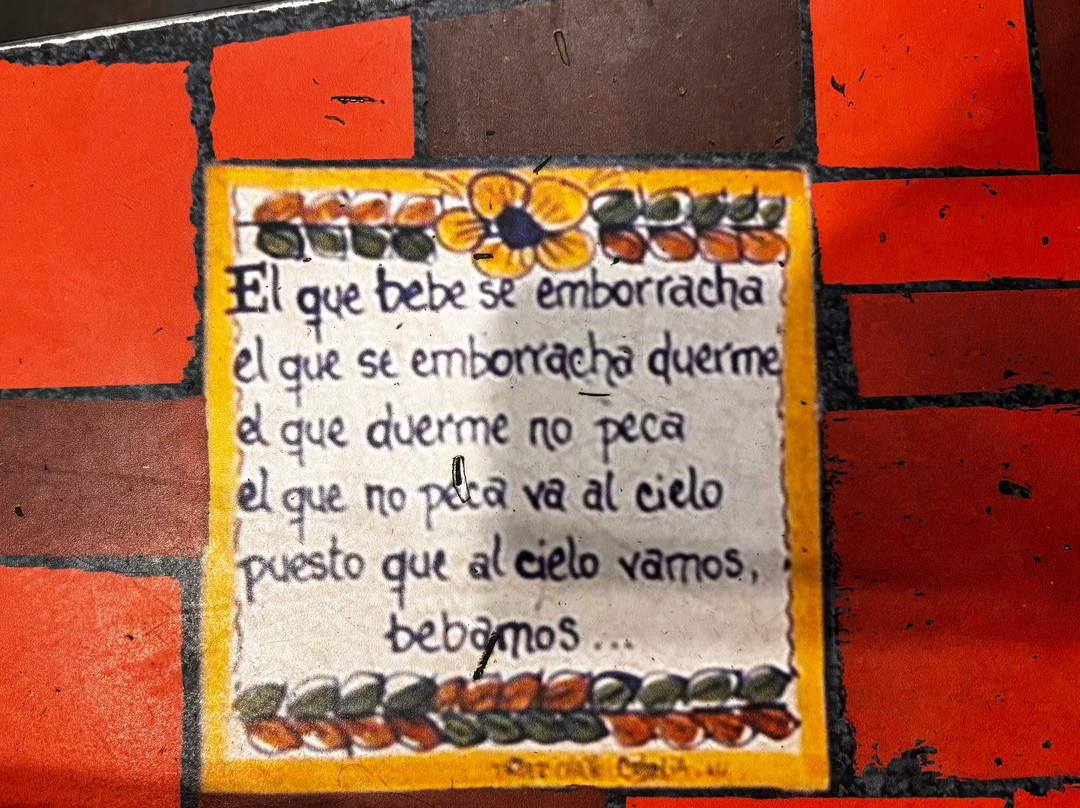 El que bebe se emborracha
el que se emborracha duerme
el que duerme no peca
el que no peca va al cielo
puesto que al cielo vamos,
bebamos...